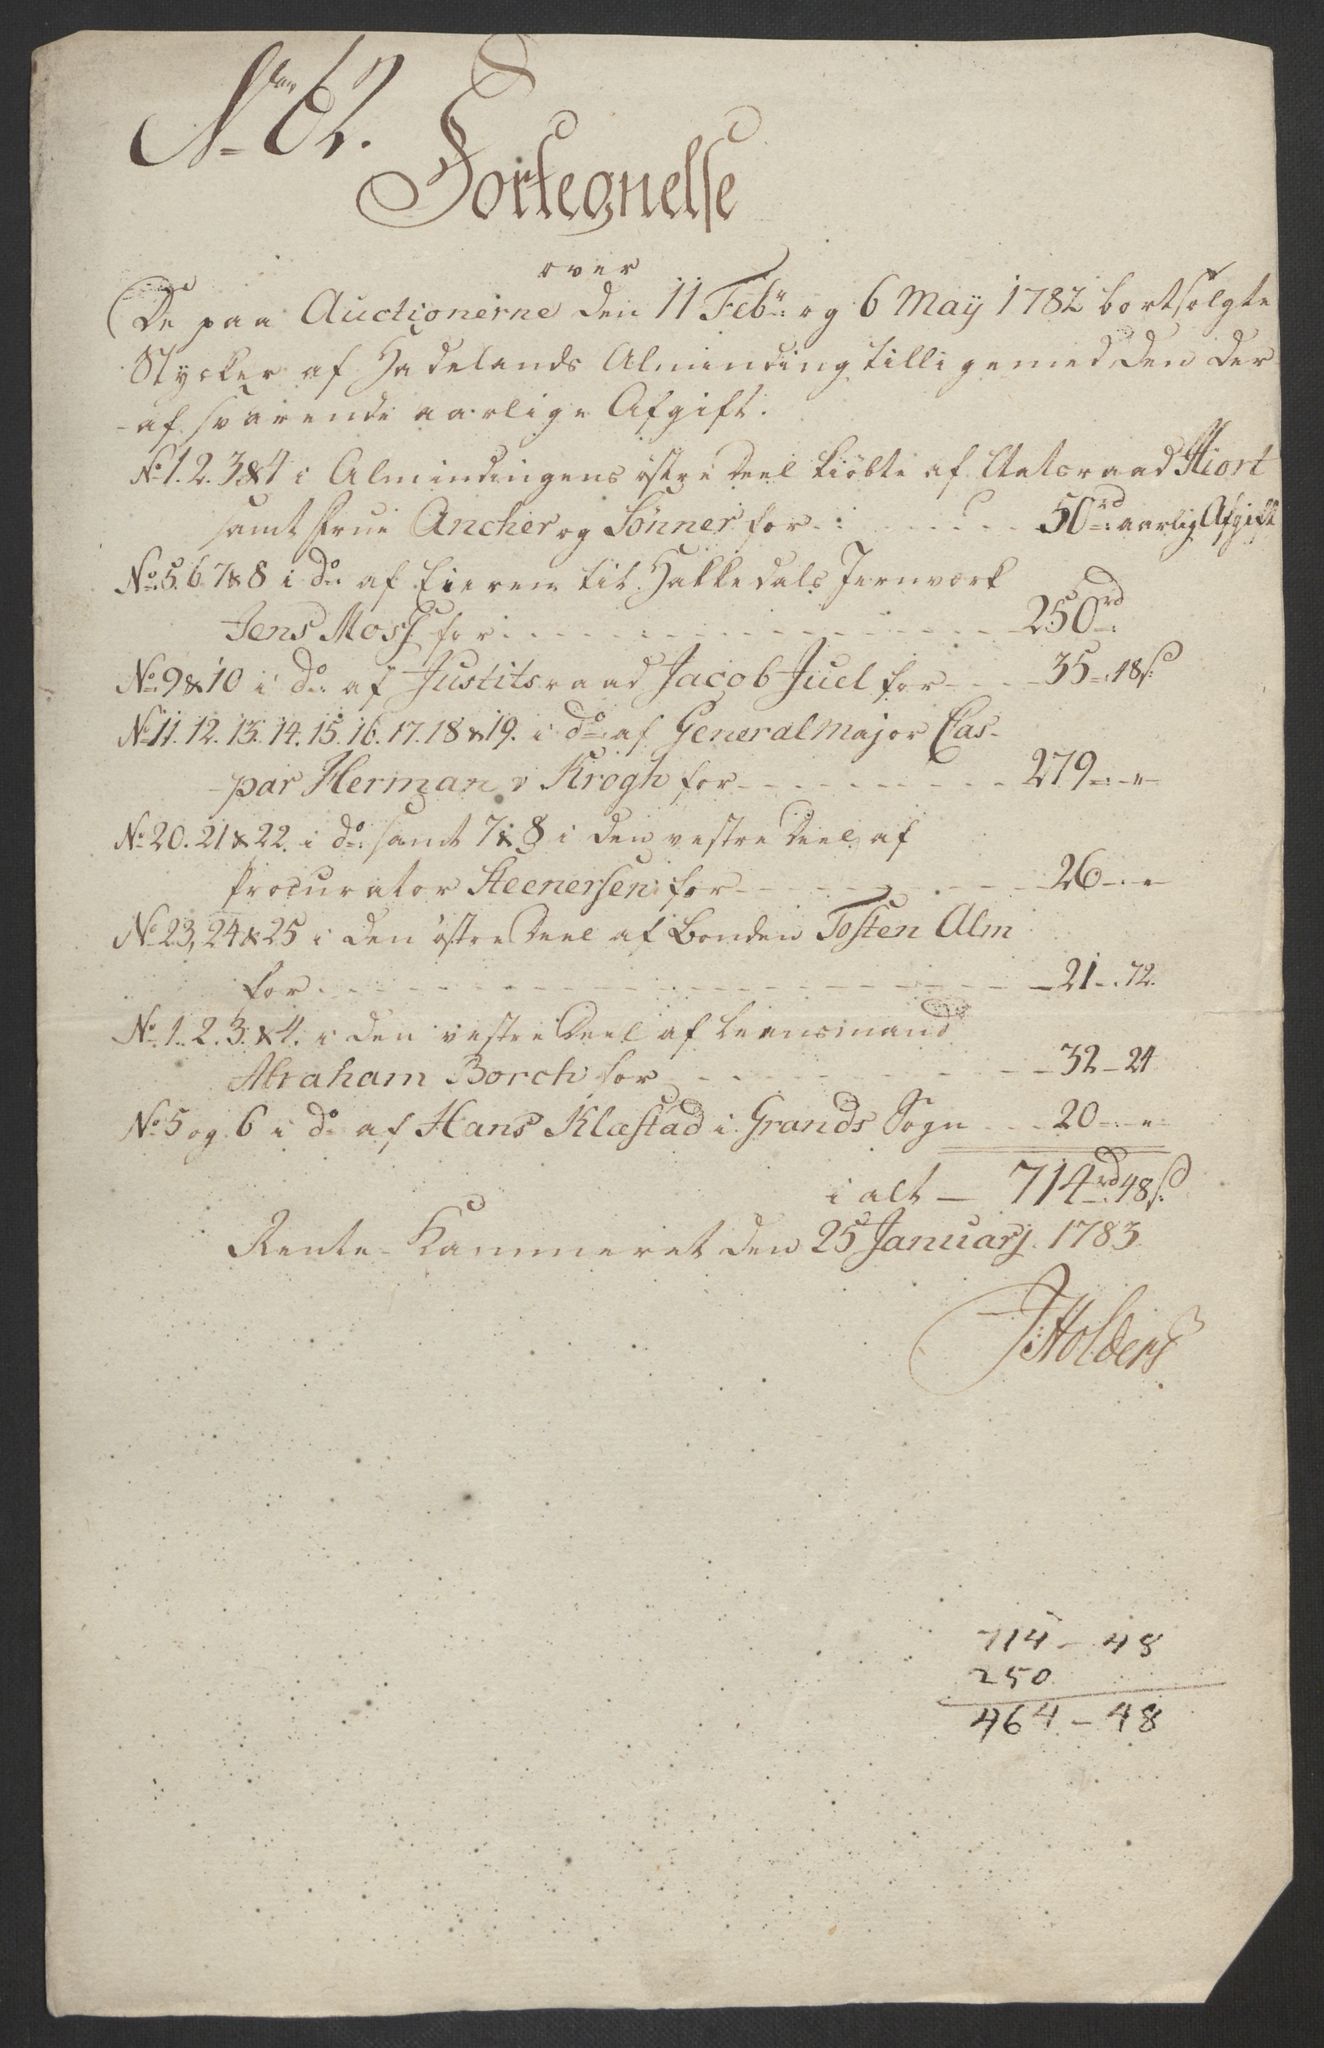 No 62.
Fortegnelse
over
De paa Auctionerne den 11 Febr: og 6 May 1782 bortsolgte
Stycker af Hadelands Alminding tilligemed den der
af svarende aarlige Afgift.
No 1. 2. 3 & 4 i Almindingens östre Deel kiöbte af Etatsraad Hiort
samt Frue Ancher og Sönner for - - - 50 rd: aarlig Afgift
No: 5. 6. 7 & 8 i do: af Eieren til Hakkedals Jernværk
Jens Moss for - - - 250 rd:
No: 9 & 10 i do: af Justitsraad Jacob Juel for - - - 35 -: 48 s:
No 11. 12. 13. 14. 15. 16. 17. 18 & 19. i do: af General Major Cas-
par Herman v Krogh for - - - 279 -: -
No: 20. 21 & 22. i do: samt 7 & 8 i den vestre Deel af
Procurator Steenersen for - - - 26 -: -
No 23, 24 & 25 i den östre Deel af Bonden Tosten Alm
for - - - 21 -: 72.
No: 1. 2. 3. & 4. i den vestre Deel af Leensmand
Abraham Borch for - - - 32 - 24
No: 5 og 6 i do: af Hans Klæstad i Grands Sogn - - - 20 -: -
i alt — 714 rd: 48 s:
Rente-Kammeret den 25 Januarj 1783.
J Holders
714 - 48
250
464 - 48